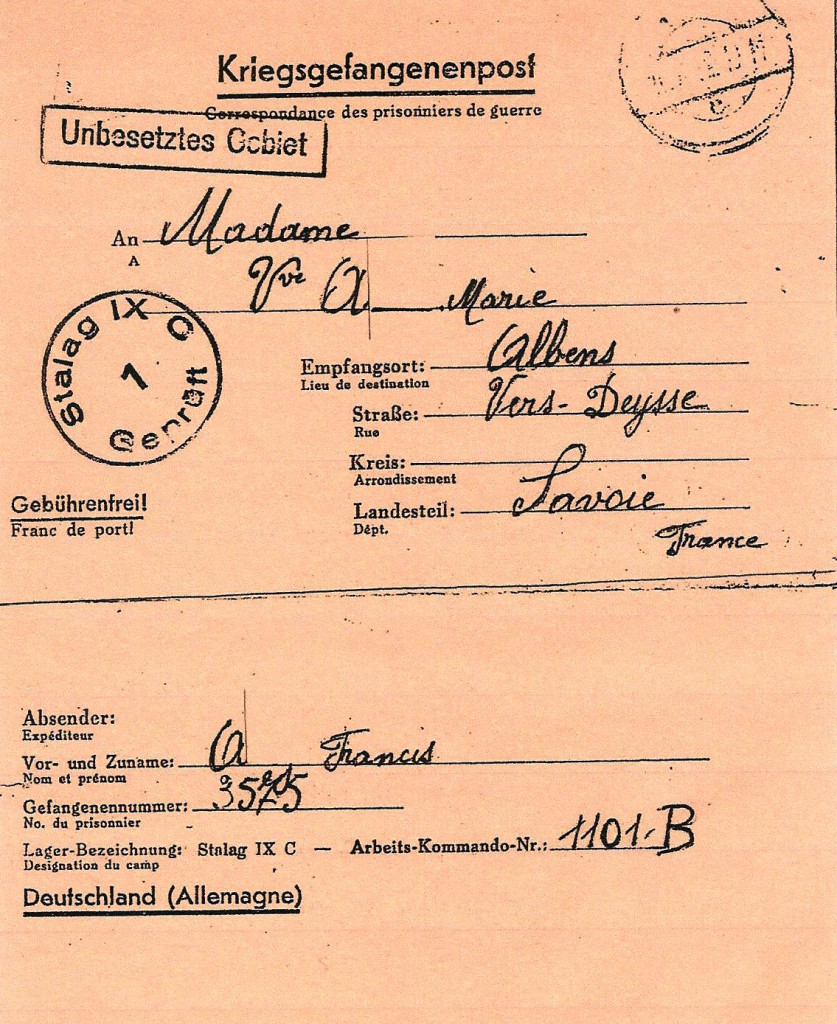 Kriegsgefangenenpost
Correspondance des prisonniers de guerre
Unbesetztes Gebiet
An Madame
A
Vve A Marie
Stalag IX C
1
Geprüft
Empfangsort: Albens
Lieu de destination
Straße: Vers-Deysse
Rue
Kreis:
Arrondissement
Gebührenfrei!
Franc de port!
Landesteil: Savoie
Dépt.
France
Absender:
Expéditeur
Vor- und Zuname: A Francis
Nom et prénom
Gefangenennummer:
No. du prisonnier
Lager-Bezeichnung: Stalag IX C — Arbeits-Kommando-Nr.: 1101-B
Désignation du camp
Deutschland (Allemagne)